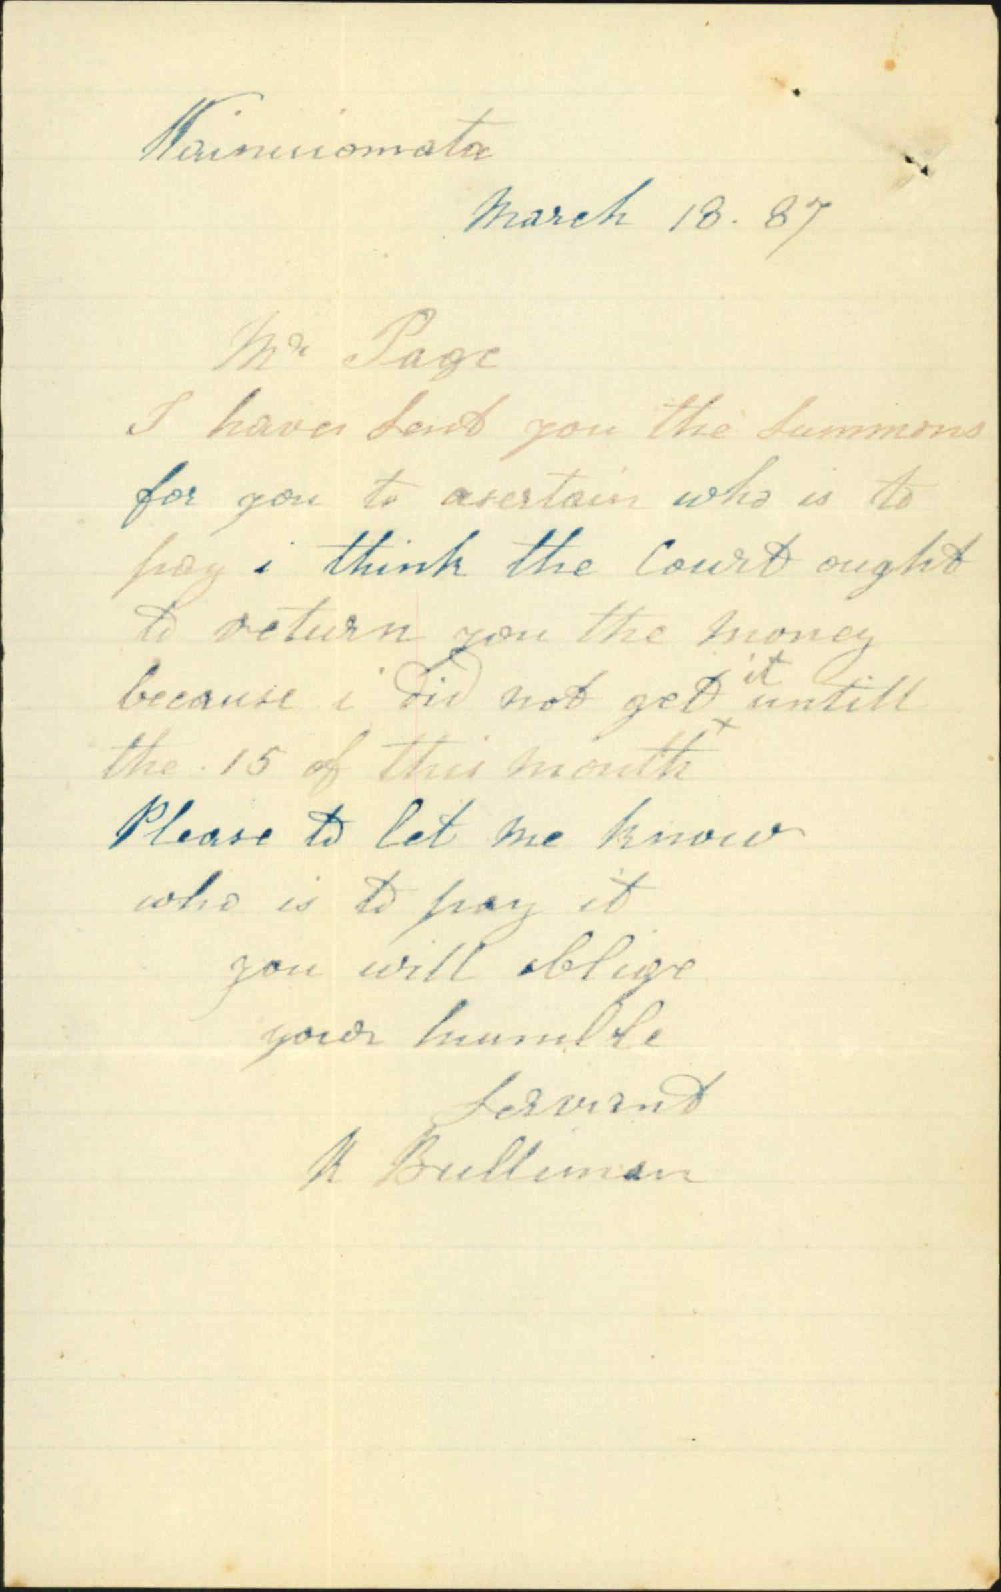 Wainuiomata
March 18. 87
Mr Page
I have sent you the Summons
for you to asertain who is to
pay i think the Court ought
to return you the money
because i did not get it untill
the 15 of this month x
Please to let me know
who is to pay it
you will oblige
your humble
Servant
R Bulliman